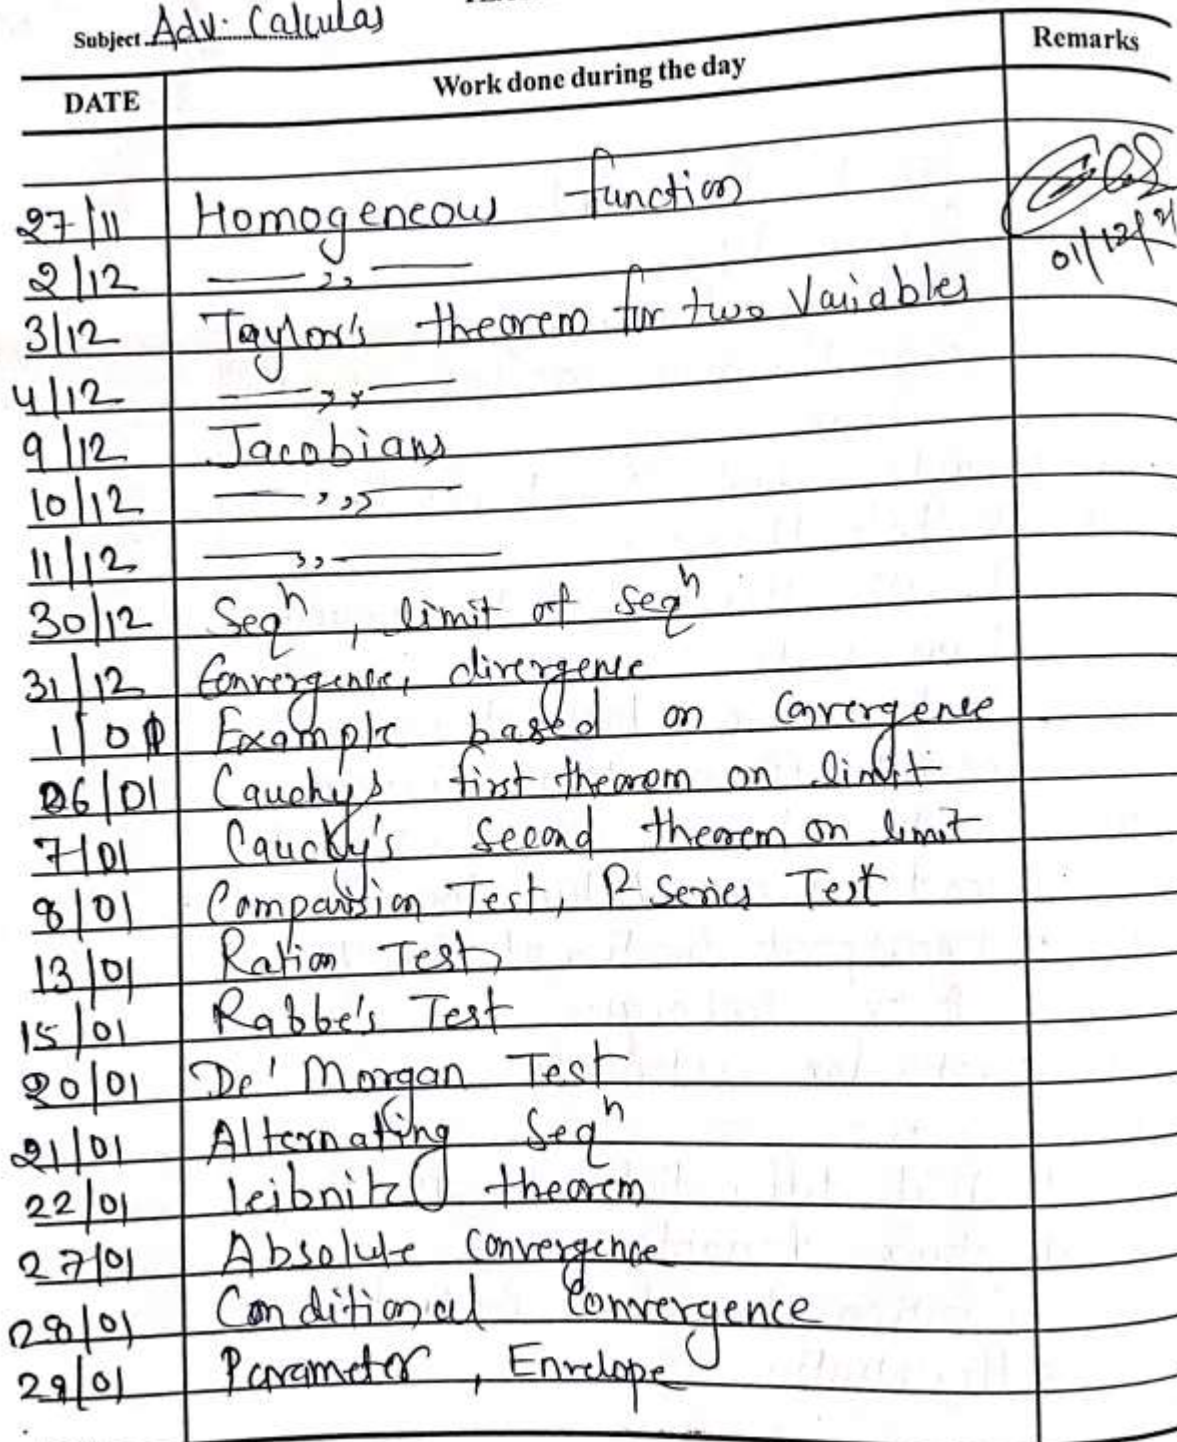 Subject Adv. Calculas
DATE Work done during the day Remarks
27/11 Homogeneous function
01/12/21
2/12 — ,, —
3/12 Taylor's theorem for two Vaiables
4/12 — ,, —
9/12 Jacobians
10/12 — ,,, —
11/12 — ,, —
30/12 Seqⁿ, limit of Seqⁿ
31/12 Convergence, divergence
1/01 Example based on Convergence
06/01 Cauchy's first theorem on limit
7/01 Caucky's Second theorem on limit
8/01 Comparision Test, P Series Test
13/01 Ration Test
15/01 Rabbe's Test
20/01 De' Morgan Test
21/01 Alternating Seqⁿ
22/01 leibnitz theorem
27/01 Absolute Convergence
28/01 Conditional Convergence
29/01 Parameter, Envelope